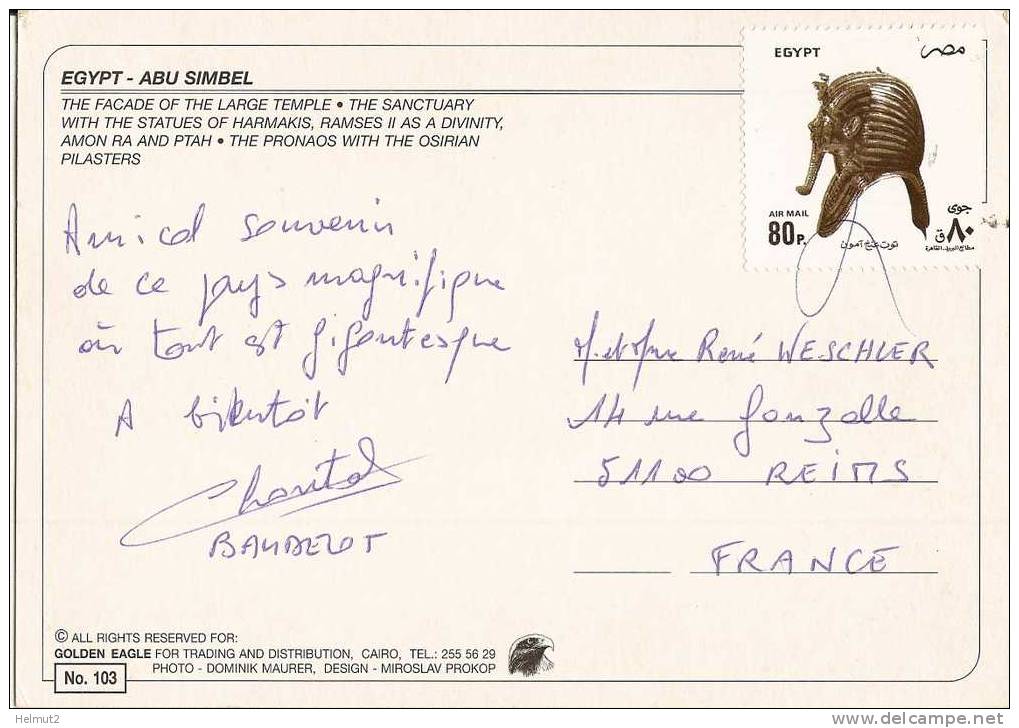 EGYPT - ABU SIMBEL
THE FACADE OF THE LARGE TEMPLE • THE SANCTUARY
WITH THE STATUES OF HARMAKIS, RAMSES II AS A DIVINITY,
AMON RA AND PTAH • THE PRONAOS WITH THE OSIRIAN
PILASTERS
EGYPT مصر
AIR MAIL
80P.
جوى
٨٠ ق
توت عنخ آمون
مطابع البريد - القاهرة
Amical souvenir
de ce pays magnifique
où tout est gigantesque
A bientôt
Chantal
M. et Mme René WESCHLER
14 rue Gonzalle
51100 REIMS
FRANCE
© ALL RIGHTS RESERVED FOR:
GOLDEN EAGLE FOR TRADING AND DISTRIBUTION, CAIRO, TEL.: 255 56 29
PHOTO - DOMINIK MAURER, DESIGN - MIROSLAV PROKOP
No. 103
Helmut2
www.delcampe.net